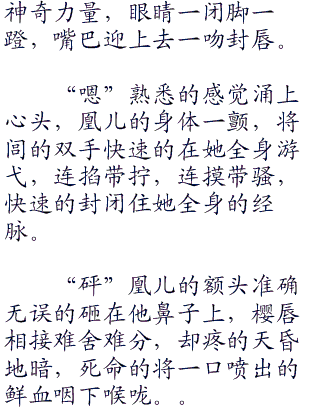 神奇力量，眼睛一闭脚一
蹬，嘴巴迎上去一吻封唇。
“嗯”熟悉的感觉涌上
心头，凰儿的身体一颤，将
间的双手快速的在她全身游
弋，连掐带拧，连摸带骚，
快速的封闭住她全身的经
脉。
“砰”凰儿的额头准确
无误的砸在他鼻子上，樱唇
相接难舍难分，却疼的天昏
地暗，死命的将一口喷出的
鲜血咽下喉咙。。